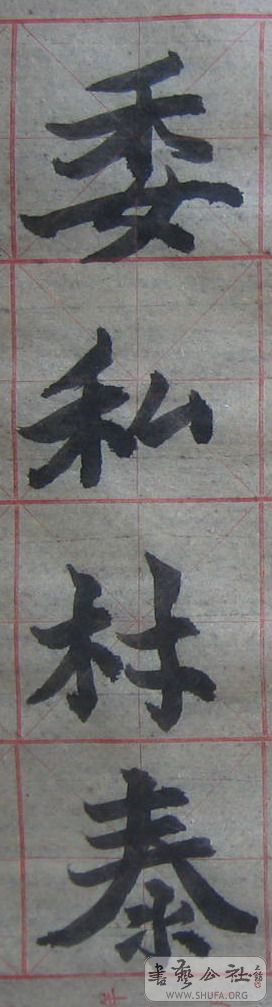 委
私
村
泰
書藝公社
WWW.SHUFA.ORG